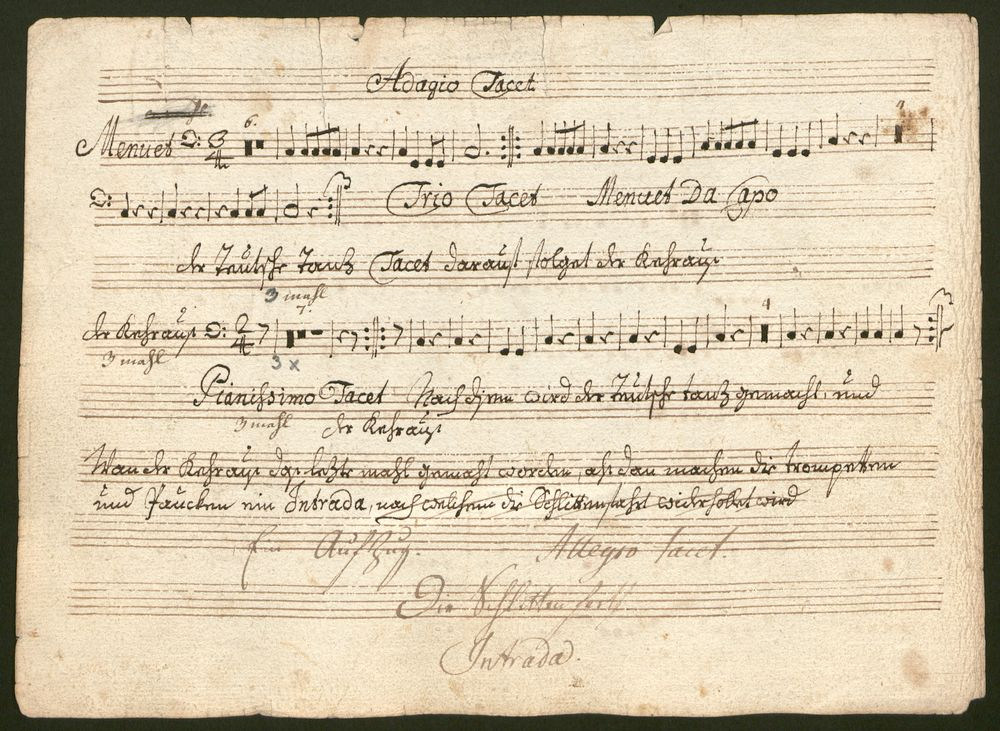 Adagio Tacet
6.
Menuet 3/4
Trio Tacet Menuet Da Capo
der Teutsche Tantz Tacet darauf folget der Kehrauß
3 mahl
7.
4
der Kehrauß 2/4
3 mahl
3 x
Pianissimo Tacet Nach disem wird der Teutsche tantz gemacht, und
3 mahl der Kehrauß
Wan der Kehrauß das letzte mahl gemacht worden, alß dan machen die trompetten
und Paucken ein Intrada, nach welchem die Schlittenfahrt widerhollet wird
Ein Aufzug. Allegro tacet.
Die Schlittenfart
Intrada.